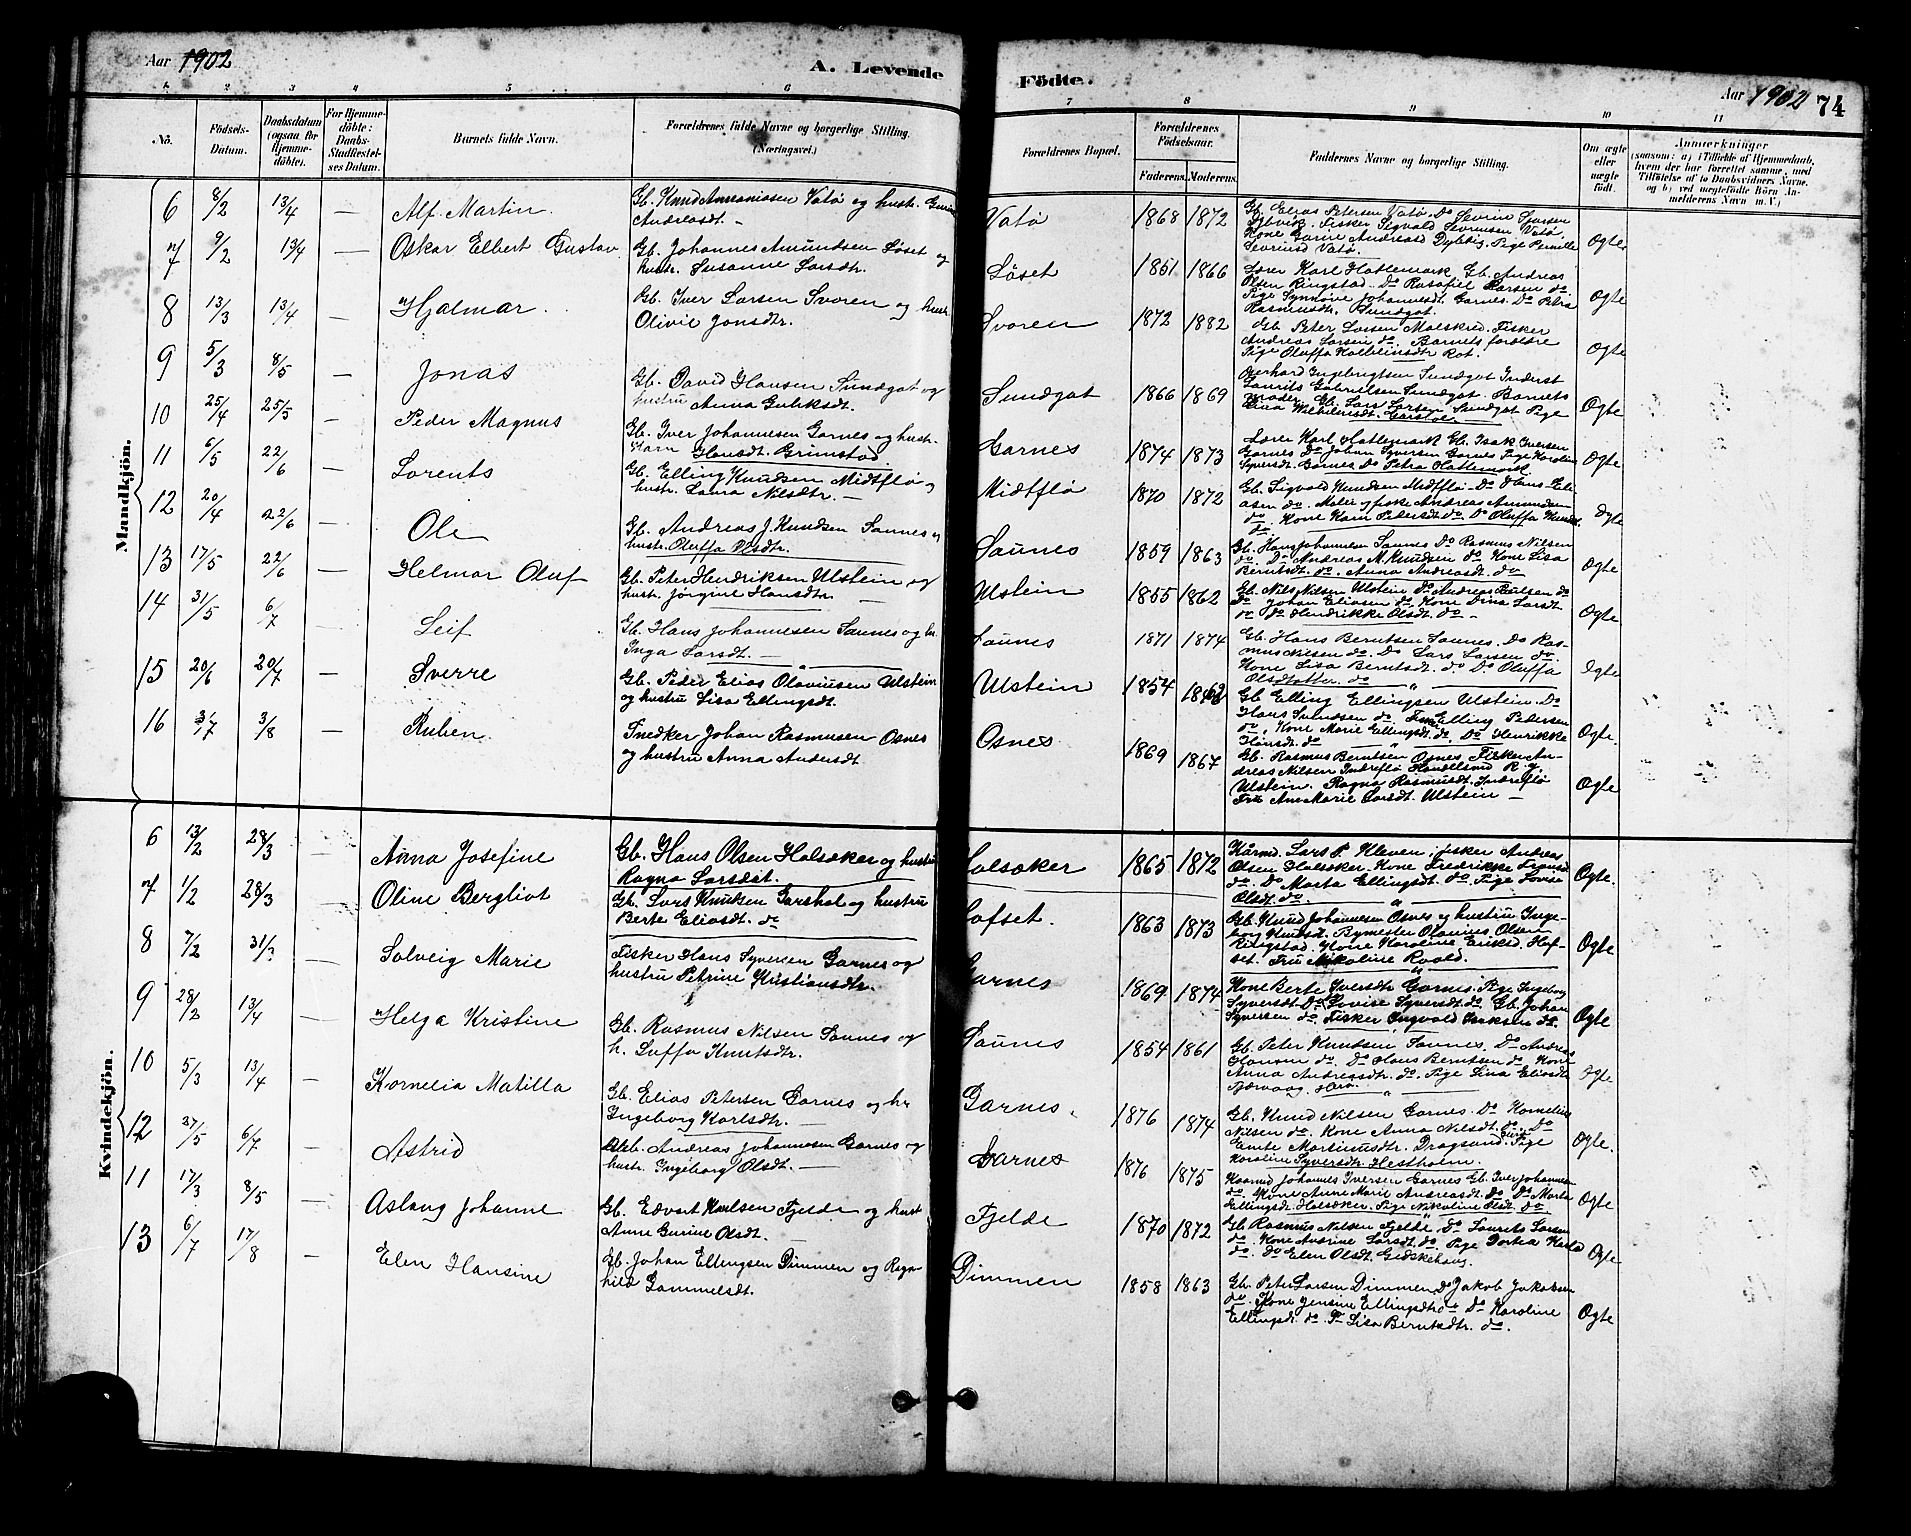 Aar 1902
A. Levende
Födte.
Aar 1902
74
1 2 3 4 5 6 7 8 9 10 11
No.
Födsels-
Datum.
Daabsdatum
(ogsaa for
Hjemme-
döbte).
For Hjemme-
döbte:
Daabs-
Stadfæstel-
ses Datum.
Barnets fulde Navn.
Forældrenes fulde Navne og borgerlige Stilling.
(Næringsvei.)
Forældrenes Bopæl.
Forældrenes
Födselsaar.
Faderens. Moderens.
Faddernes Navne og borgerlige Stilling.
Om ægte
eller
uægte
födt.
Anmærkninger
(saasom: a) i Tilfælde af Hjemmedaab,
hvem der har forrettet samme, med
Tilföielse af to Daabsvidners Navne,
og b) ved uægtefödte Börn An-
melderens Navn m. V.)
Mandkjön.
6 8/2 13/4 — Alf Martin. Gb. Knud Ananiasen Vatø og hustr. Gurine
Andreasdt. — Vatø 1868 1872 Gb. Elias Petersen Vatø. Do Severin Sjursen
Fisker Sigvald Severinsen Vatø.
Kone Gurine Andreasd Dyb Pige Pernille
Severinsd Vatø. Ogte
7 9/2 13/4 — Oskar Elbert Gustav Gb. Johannes Amundsen Løset og
hustr. Susanne Larsdtr. Løset 1851 1866 Lærer Karl Hatlemark Gb. Andreas
Olsen Ringstad. Do Rasafiel Larsen do.
Pige Synnøve Johannesdt. Garnes. Do Petra
Rasmusdtr. Sundgot. Ogte
8 13/3 13/4 — Hjalmar. Gb. Iver Larsen Svoren og hustr.
Olivie Jonsdtr. Svoren 1872 1882 Gb. Peter Larsen Molskred. Fisker
Andreas Larsen do. Barnets forældre
Pige Oluffa Kolbeinsdtr Rot. Ogte
9 5/3 8/5 — Jonas Gb. David Hansen Sundgot og
hustru Anna Guliksdt. Sundgot 1866 1869 Gerhard Ingebrigtsen Sundgot Inderst
Laurits Gabrielsen Sundgot. Barnets
moder. Gb. Lars Larsen Sundgot Pige
Lina Vilhelmsdt. Ogte
10 25/4 25/5 — Peder Magnus Gb. Iver Johannesen Garnes og hustr.
Karn Hansdt. Grimstad Garnes 1874 1873 Lærer Karl Hatlemark Gb. Isak Iversen
Garnes Do Johan Syversen Garnes Pige Karoline
Syversdt. Garnes Do Petra Hatlemark Ogte
11 6/5 22/6 — Lorents Gb. Elling Knudsen Midtflø og
hustr. Laura Nilsdtr. — Midtflø 1870 1872 Gb. Sigvald Knudsen Midtflø. Do Hans Eli-
asen do. Maler og fisker Andreas Amundsen
do. Kone Karn Pedersdt. do. Do Oluffa Knudsd.
do. Ogte
12 20/4 22/6 — Ole Gb. Andreas J. Knudsen Saunes og
hustr. Oluffa Olsdtr. Saunes 1859 1863 Gb. Hans Johannesen Saunes Do Rasmus Nilsen
do. Do Andreas M. Knudsen do Kone Lisa
Berntsdt. do. Anna Andreasdt. do Ogte
13 17/5 22/6 — Helmar Oluf Gb. Peter Hendriksen Ulstein og
hustr. Jørgine Hansdtr. — Ulstein 1855 1862 Gb. Nils Nilsen Ulstein Do Andreas Paulsen do
Do Johan Eliasen do Kone Dina Larsdt
do Do Hendrikke Olsdt. do — Ogte
14 31/5 6/7 Leif Gb. Hans Johannesen Saunes og h.
Inga Larsdt. — Saunes 1871 1874 Gb. Hans Berntsen Saunes. Do Ras-
mus Nilsen do. Do Lars Larsen do.
Kone Lisa Berntsdt. do Do Oluffa
Olsdtatter. do Ogte
15 20/6 20/7 — Sverre Gb. Peder Elias Olavussen Ulstein
og hustru Lisa Ellingsdt. Ulstein 1854 1862 Gb. Elling Ellingsen Ulstein. Do
Hans Sivertsen do. Elling Pedersen
do. Kone Marie Ellingsdt. do, Do Henrikke
Hansdt. do Ogte.
16 3/7 3/8 — Ruben. Snedker Johan Rasmusen Osnes
og hustru Anna Andersdt. Osnes 1869 1867 Gb. Rasmus Berntsen Osnes. Fisker An-
dreas Nilsen Indreflø Handelsmd R. y
Ulstein. Ragna Rasmusdt. Indreflø
Fru Ann Marie Larsdt. Ulstein — Ogte
Kvindekjön.
6 13/2 28/3 — Anna Josefine Gb. Hans Olsen Halsøker og hustru
Ragna Larsdat. Halsøker 1865 1872 Kårmd. Lars P. Kleven. fisker Andreas
Olsen Halsøker. Kone Fredrikke Fransd
do. Do Marta Ellingsdt. do. Pige Lovise
Olsdt. do. Ogte.
7 1/2 28/3 — Oline Bergliot Gb. Lars Knutsen Garshol og hustru
Berte Eliasdt. do Hofset. 1863 1873 Gb. Knud Johannesen Osnes og hustru Inge-
borg Knudsdt. Bymester Olavius Olsen
Ringstad. Kone Karoline Eriksd. Hof-
set. Fru Nikoline Roald. Ogte
8 7/2 31/3 — Solveig Marie Fisker Hans Syversen Garnes og
hustru Petrine Kristiansdtr. Garnes 1869 1874 Kone Berte Iversdtr Garnes. Pige Ingeborg
Syversdt. Do Lovise Syversdt. do Gb. Johan
Syversen do. Fisker Ingvald Eriksen do. Ogte
9 28/2 13/4 — Helga Kristine Gb. Rasmus Nilsen Saunes og
h. Luffa Knutsdtr. Saunes 1854 1861 Gb. Peter Knudsen Saunes. Do Andreas
Hansen do. Do Hans Berntsen do Kone
Anna Andreasdtr. do. Pige Lina Eliasdtr
Ogte
10 5/3 13/4 — Kornelia Matilla Gb. Elias Petersen Garnes og h.
Ingeborg Karlsdtr. — Garnes. 1876 1874 Gb. Knud Nilsen Garnes. Do Kornelius
Nilsen do. Kone Anna Nilsdt. do. Do
Emte Martinusdtr. Dragsund. Pige
Karoline Syversdtr. Hestholm. Ogte.
12 27/5 6/7 — Astrid Gb. Andreas Johannesen Garnes og
hustr. Ingeborg Olsdt. — Garnes 1876 1875 Kaarmd Johannes Iversen Garnes Gb. Iver Johannesen
do. Kone Anne Marie Andreasdt. do Do Marta
Ellingsdt. Halsøker. Pige Nikoline Olsdt. Do Ogte
11 17/3 8/5 — Aslaug Johanne Gb. Edvart Karlsen Fjelde og hust
Anne Gurine Olsdt. — Fjelde 1870 1872 Gb. Rasmus Nilsen Fjelde. Do Laurits Larsen
do. Kone Andrine Larsdt. do. Pige Dortea Karlsd
do. do Elen Olsdt. Gidskehaug. Ogte
13 6/7 17/8 — Elen Hansine Gb. Johan Ellingsen Dimmen og Ragn-
hild Gammelsdt. Dimmen 1858 1863 Gb. Peter Larsen Dimmen Do Jakob Jakobsen
do. Kone Jensine Ellingsdtr do Do Karoline
Ellingsd. do P. Lisa Berntsdtr. do. Ogte